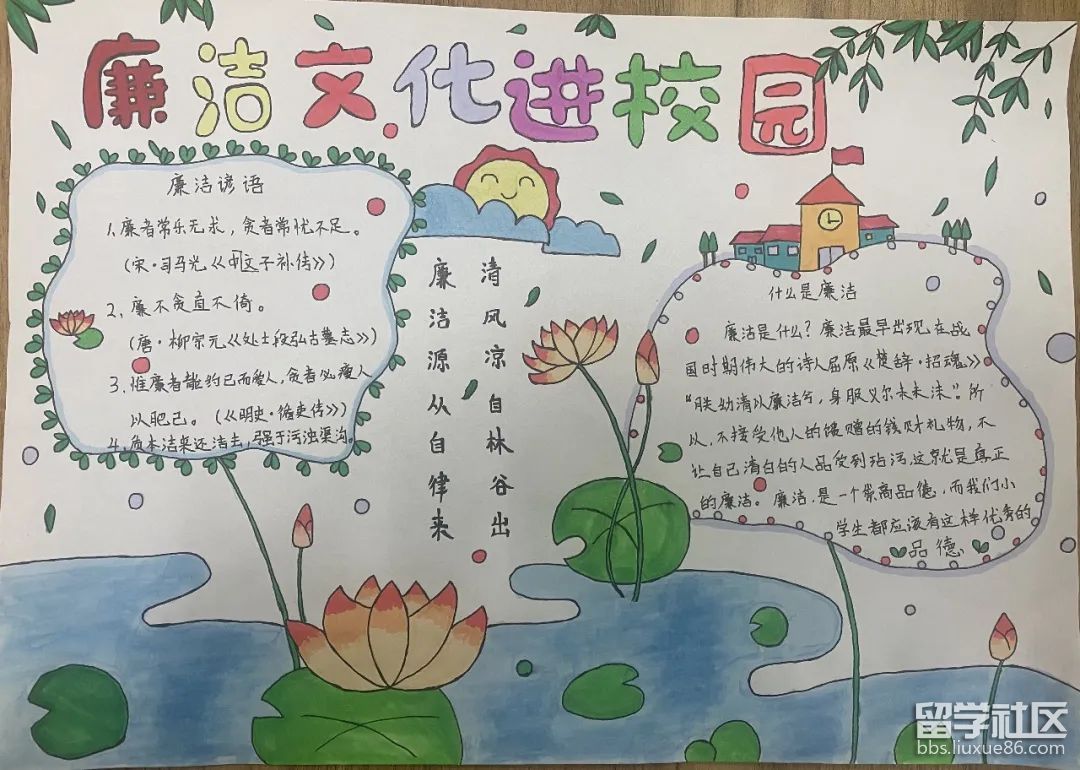 廉洁文化进校园
廉洁谚语
1.廉者常乐无求，贪者常忧不足。
(宋·司马光《文子补传》)
2.廉不贪直不倚。
(唐·柳宗元《处士段弘古墓志》)
3.惟廉者能约己而爱人，贪者必瘦人
以肥己。(《明史·循吏传》)
4.质本洁来还洁去，强于污浊渠沟。
清风凉自林谷出
廉洁源从自律来
什么是廉洁
廉洁是什么？廉洁最早出现在战
国时期伟大的诗人屈原《楚辞·招魂》
“朕幼清以廉洁兮，身服义尔未沫”。所
以，不接受他人的馈赠的钱财礼物，不
让自己清白的人品受到玷污，这就是真正
的廉洁。廉洁，是一个崇高品德，而我们小
学生都应该有这样优秀的
品德
留学社区
bbs.liuxue86.com